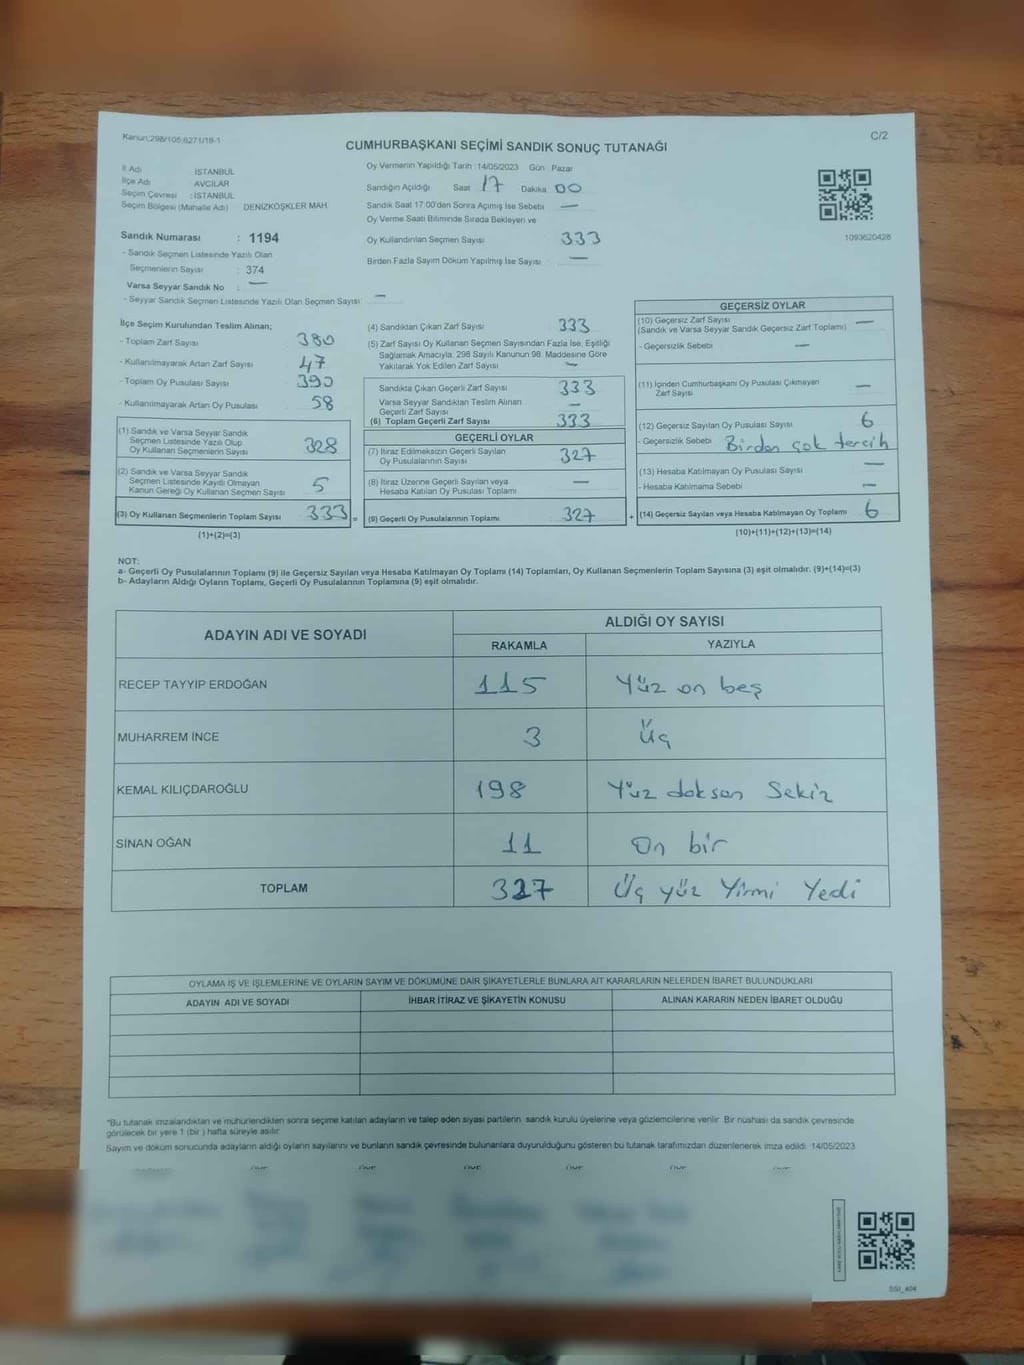 Kanun:298/105;6271/19-1
C/2
CUMHURBAŞKANI SEÇİMİ SANDIK SONUÇ TUTANAĞI
İl Adı : İSTANBUL
İlçe Adı : AVCILAR
Seçim Çevresi : İSTANBUL
Seçim Bölgesi (Mahalle Adı) DENİZKÖŞKLER MAH.
Sandık Numarası : 1194
- Sandık Seçmen Listesinde Yazılı Olan
Seçmenlerin Sayısı : 374
Varsa Seyyar Sandık No : —
- Seyyar Sandık Seçmen Listesinde Yazılı Olan Seçmen Sayısı : —
Oy Vermenin Yapıldığı Tarih : 14/05/2023 Gün : Pazar
Sandığın Açıldığı Saat 17 Dakika 00
Sandık Saat 17:00'den Sonra Açımış İse Sebebi —
Oy Verme Saati Bitiminde Sırada Bekleyen ve
Oy Kullandırılan Seçmen Sayısı 333
Birden Fazla Sayım Döküm Yapılmış İse Sayısı —
1093620428
İlçe Seçim Kurulundan Teslim Alınan;
- Toplam Zarf Sayısı 380
- Kullanılmayarak Artan Zarf Sayısı 47
- Toplam Oy Pusulası Sayısı 390
- Kullanılmayarak Artan Oy Pusulası 58
(1) Sandık ve Varsa Seyyar Sandık
Seçmen Listesinde Yazılı Olup
Oy Kullanan Seçmenlerin Sayısı 328
(2) Sandık ve Varsa Seyyar Sandık
Seçmen Listesinde Kayıtlı Olmayan
Kanun Gereği Oy Kullanan Seçmen Sayısı 5
(3) Oy Kullanan Seçmenlerin Toplam Sayısı 333 =
(1)+(2)=(3)
(4) Sandıktan Çıkan Zarf Sayısı 333
(5) Zarf Sayısı Oy Kullanan Seçmen Sayısından Fazla İse, Eşitliği
Sağlamak Amacıyla, 298 Sayılı Kanunun 98. Maddesine Göre
Yakılarak Yok Edilen Zarf Sayısı —
Sandıkta Çıkan Geçerli Zarf Sayısı 333
Varsa Seyyar Sandıktan Teslim Alınan
Geçerli Zarf Sayısı —
(6) Toplam Geçerli Zarf Sayısı 333
GEÇERLİ OYLAR
(7) İtiraz Edilmeksizin Geçerli Sayılan
Oy Pusulalarının Sayısı 327
(8) İtiraz Üzerine Geçerli Sayılan veya
Hesaba Katılan Oy Pusulası Toplamı —
(9) Geçerli Oy Pusulalarının Toplamı 327 +
GEÇERSİZ OYLAR
(10) Geçersiz Zarf Sayısı —
(Sandık ve Varsa Seyyar Sandık Geçersiz Zarf Toplamı)
- Geçersizlik Sebebi —
(11) İçinden Cumhurbaşkanı Oy Pusulası Çıkmayan
Zarf Sayısı —
(12) Geçersiz Sayılan Oy Pusulası Sayısı 6
- Geçersizlik Sebebi Birden çok tercih
(13) Hesaba Katılmayan Oy Pusulası Sayısı —
- Hesaba Katılmama Sebebi —
(14) Geçersiz Sayılan veya Hesaba Katılmayan Oy Toplamı 6
(10)+(11)+(12)+(13)=(14)
NOT:
a- Geçerli Oy Pusulalarının Toplamı (9) ile Geçersiz Sayılan veya Hesaba Katılmayan Oy Toplamı (14) Toplamları, Oy Kullanan Seçmenlerin Toplam Sayısına (3) eşit olmalıdır. (9)+(14)=(3)
b- Adayların Aldığı Oyların Toplamı, Geçerli Oy Pusulalarının Toplamına (9) eşit olmalıdır.
ADAYIN ADI VE SOYADI
ALDIĞI OY SAYISI
RAKAMLA YAZIYLA
RECEP TAYYİP ERDOĞAN 115 Yüz on beş
MUHARREM İNCE 3 Üç
KEMAL KILIÇDAROĞLU 198 Yüz doksan Sekiz
SİNAN OĞAN 11 On bir
TOPLAM 327 Üç yüz Yirmi Yedi
OYLAMA İŞ VE İŞLEMLERİNE VE OYLARIN SAYIM VE DÖKÜMÜNE DAİR ŞİKAYETLERLE BUNLARA AİT KARARLARIN NELERDEN İBARET BULUNDUKLARI
ADAYIN ADI VE SOYADI İHBAR İTİRAZ VE ŞİKAYETİN KONUSU ALINAN KARARIN NEDEN İBARET OLDUĞU
*Bu tutanak imzalandıktan ve mühürlendikten sonra seçime katılan adayların ve talep eden siyasi partilerin sandık kurulu üyelerine veya gözlemcilerine verilir. Bir nüshası da sandık çevresinde
görülecek bir yere 1 (bir) hafta süreyle asılır.
Sayım ve döküm sonucunda adayların aldığı oyların sayılarını ve bunların sandık çevresinde bulunanlara duyurulduğunu gösteren bu tutanak tarafımızdan düzenlenerek imza edildi. 14/05/2023
SSI_404